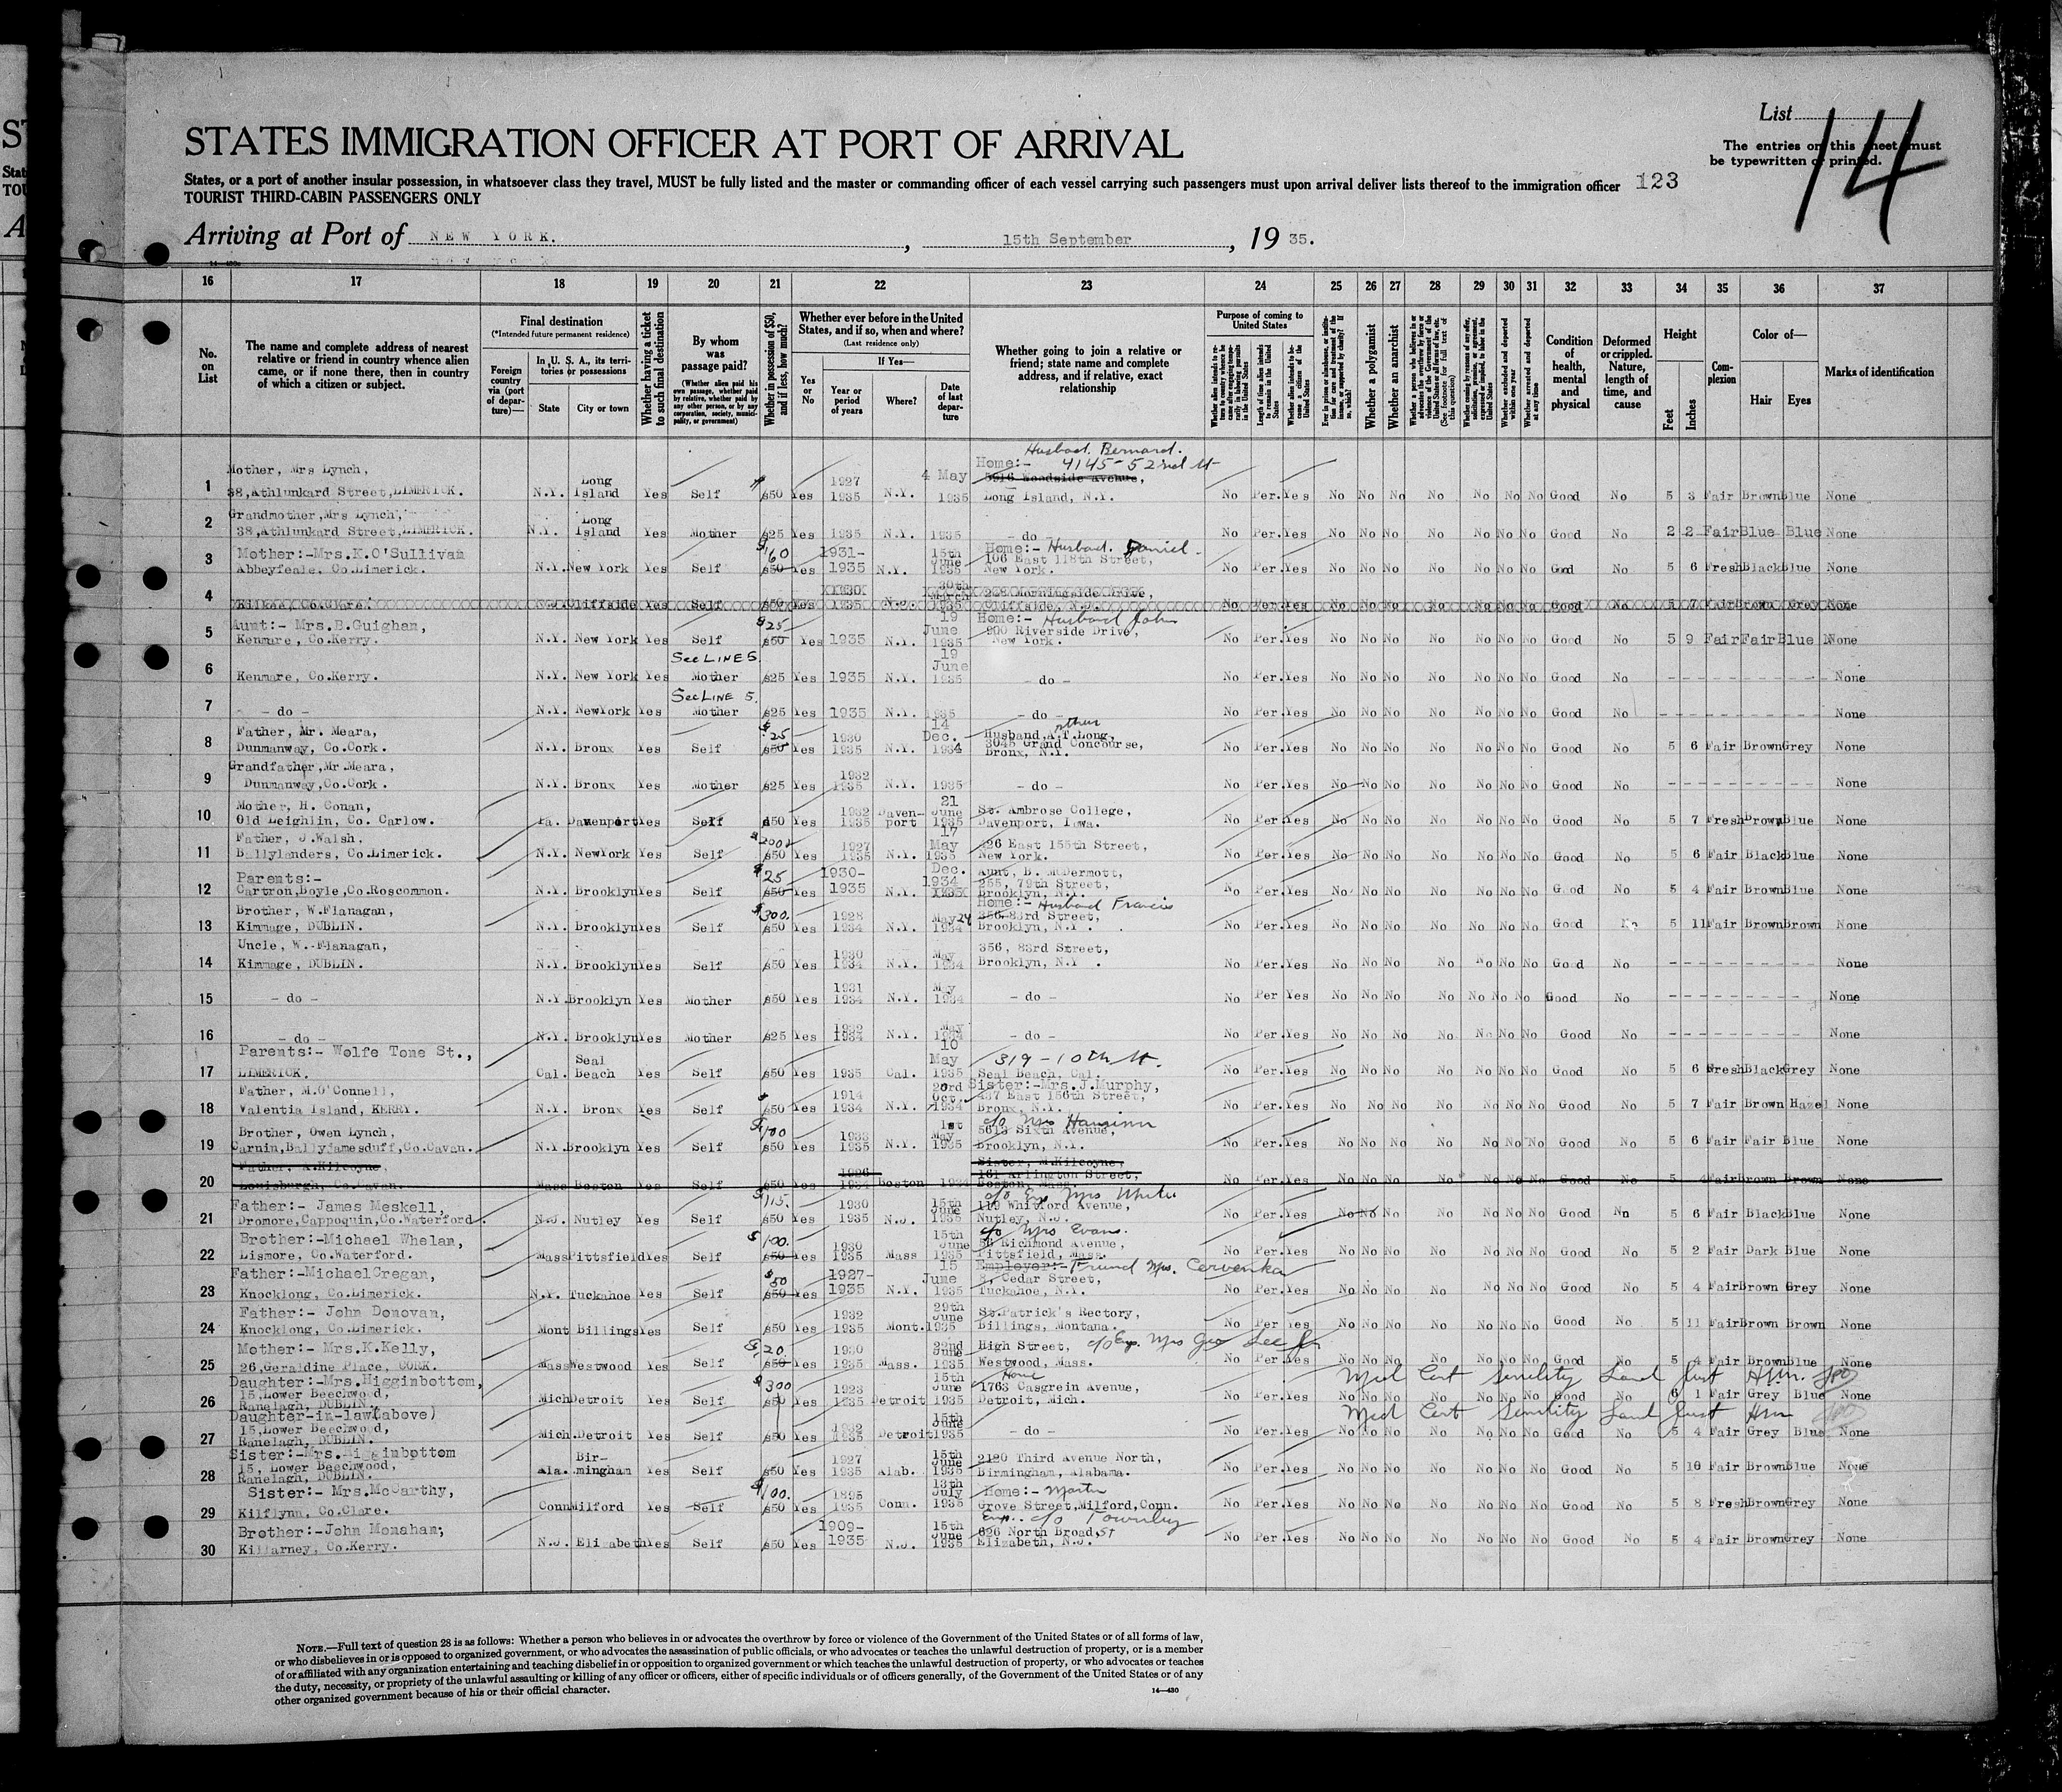 List 14
STATES IMMIGRATION OFFICER AT PORT OF ARRIVAL
The entries on this sheet must
be typewritten or printed.
States, or a port of another insular possession, in whatsoever class they travel, MUST be fully listed and the master or commanding officer of each vessel carrying such passengers must upon arrival deliver lists thereof to the immigration officer 123
TOURIST THIRD-CABIN PASSENGERS ONLY
Arriving at Port of NEW YORK. , 15th September , 19 35.
16 17 18 19 20 21 22 23 24 25 26 27 28 29 30 31 32 33 34 35 36 37
No. on List
The name and complete address of nearest relative or friend in country whence alien came, or if none there, then in country of which a citizen or subject.
Final destination
(*Intended future permanent residence)
Foreign country via (port of departure)—
In U. S. A., its territories or possessions
State
City or town
Whether having a ticket to such final destination
By whom was passage paid?
(Whether alien paid his own passage, whether paid by relative, whether paid by any other person, or by any corporation, society, municipality, or government)
Whether in possession of $50, and if less, how much?
Whether ever before in the United States, and if so, when and where?
(Last residence only)
Yes or No
If Yes—
Year or period of years
Where?
Date of last departure
Whether going to join a relative or friend; state name and complete address, and if relative, exact relationship
Purpose of coming to United States
Length of time alien intends to remain in the United States
Whether alien intends to become a citizen of the United States
Whether a polygamist
Whether an anarchist
Whether excluded and deported within one year
Whether arrested and deported at any time
Condition of health, mental and physical
Deformed or crippled. Nature, length of time, and cause
Height
Feet
Inches
Complexion
Color of—
Hair
Eyes
Marks of identification
Husband. Bernard.
Mother, Mrs Lynch, 4 May Home:- 4145-52nd St
1 38,Athlunkard Street,LIMERICK. N.Y. Long Island Yes Self $50 Yes 1927 1935 N.Y. 1935 5916 Woodside Avenue, Long Island, N.Y. No Per. Yes No No No No No No No Good No 5 3 Fair Brown Blue None
Grandmother,Mrs Lynch,
2 38,Athlunkard Street,LIMERICK. N.Y. Long Island Yes Mother $25 Yes 1935 N.Y. 1935 - do - No Per. Yes No No No No No No No Good No 2 2 Fair Blue Blue None
Mother:-Mrs.K.O'Sullivan $60 1931- 15th June Home:- Husband. Daniel.
3 Abbeyfeale, Co.Limerick. N.Y. New York Yes Self $50 Yes 1935 N.Y. 1935 106 East 118th Street, New York. No Per. Yes No No No No No No No Good No 5 6 Fresh Black Blue None
4 Kilkee, Co.Clare. N.J. Cliffside Yes Self $50 Yes 1935 N.J. 30th March 1935 Morningside Drive, Cliffside, N.J. No Per. Yes No No No No No No No Good No 5 7 Fair Brown Grey None
Aunt:- Mrs.B.Guighan, $25 19 June Home:- Husband John
5 Kenmare, Co.Kerry. N.Y. New York Yes Self $50 Yes 1935 N.Y. 1935 900 Riverside Drive, New York. No Per. Yes No No No No No No No Good No 5 9 Fair Fair Blue None
See LINE 5. 19 June
6 Kenmare, Co.Kerry. N.Y. New York Yes Mother $25 Yes 1935 N.Y. 1935 - do - No Per. Yes No No No No No No No Good No None
See LINE 5
7 - do - N.Y. NewYork Yes Mother $25 Yes 1935 N.Y. 1935 - do - No Per. Yes No No No No No No No Good No None
Father, Mr. Meara, $25 14 Dec. Husband,A.T.Long, Arthur
8 Dunmanway, Co.Cork. N.Y. Bronx Yes Self $50 Yes 1930 1935 N.Y. 1934 3045 Grand Concourse, Bronx, N.Y. No Per. Yes No No No No No No No Good No 5 6 Fair Brown Grey None
Grandfather,Mr.Meara,
9 Dunmanway,Co.Cork. N.Y. Bronx Yes Mother $25 Yes 1932 1935 N.Y. 1935 - do - No Per. Yes No No No No No No No Good No None
Mother, H. Conan, 21 June St. Ambrose College,
10 Old Leighlin, Co. Carlow. Davenport Yes Self $50 Yes 1932 1935 Davenport 1935 Davenport, Iowa. No Per. Yes No No No No No No No Good No 5 7 Fresh Brown Blue None
Father, J.Walsh, $200 17 May
11 Ballylanders, Co.Limerick. N.Y. NewYork Yes Self $50 Yes 1927 1935 N.Y. 1935 426 East 155th Street, New York. No Per. Yes No No No No No No No Good No 5 6 Fair Black Blue None
Parents:- $25 1930- Dec. 1934 Aunt, B. McDermott,
12 Cartron,Boyle,Co.Roscommon. N.Y. Brooklyn Yes Self $50 Yes 1935 N.Y. 255, 79th Street, Brooklyn, N.Y. No Per. Yes No No No No No No No Good No 5 4 Fair Brown Blue None
Brother, W.Flanagan, $300. Home:- Husband Francis
13 Kimmage, DUBLIN. N.Y. Brooklyn Yes Self $50 Yes 1928 1934 N.Y. May 24 1934 356 83rd Street, Brooklyn, N.Y. No Per. Yes No No No No No No No Good No 5 11 Fair Brown Brown None
Uncle, W. Flanagan,
14 Kimmage, DUBLIN. N.Y. Brooklyn Yes Self $50 Yes 1930 1934 N.Y. May 1934 356, 83rd Street, Brooklyn, N.Y. No Per. Yes No No No No No No No Good No None
15 - do - N.Y. Brooklyn Yes Mother $50 Yes 1931 1934 N.Y. May 1934 - do - No Per Yes No No No No No No No Good No None
16 - do - N.Y. Brooklyn Yes Mother $25 Yes 1932 1934 N.Y. May 1934 - do - No Per. Yes No No No No No No No Good No None
Parents:- Wolfe Tone St., 10 May 319-10th St.
17 LIMERICK. Cal. Seal Beach Yes Self $50 Yes 1935 Cal. 1935 Seal Beach, Cal. No Per. Yes No No No No No No No Good No 5 6 Fresh Black Grey None
Father, M.O'Connell, Oct. Sister:-Mrs.J.Murphy,
18 Valentia Island, KERRY. N.Y. Bronx Yes Self $50 Yes 1914 1934 N.Y. 1934 437 East 156th Street, Bronx, N.Y. No Per. Yes No No No No No No No Good No 5 7 Fair Brown Hazel None
Brother, Owen Lynch, $100 1st May c/o Mrs
19 Carnin,Ballyjamesduff,Co.Cavan. N.Y. Brooklyn Yes Self $50 Yes 1933 1935 N.Y. 1935 5613 Sixth Avenue, Brooklyn, N.Y. No Per. Yes No No No No No No No Good No 5 6 Fair Fair Blue None
Father, A.Kilcoyne, Sister, M.Kilcoyne,
20 Louisburgh, Co.Cavan. Mass Boston Yes Self $50 Yes 1926 1934 Boston 1934 161 Arlington Street, Boston, Mass. No Per. Yes No No No No No No No Good No 5 4 Fair Brown Brown None
Father:- James Meskell, $115. 15th June c/o Emp Mrs White
21 Dromore,Cappoquin,Co.Waterford. N.J. Nutley Yes Self $50 Yes 1930 1935 N.J. 1935 119 Whitford Avenue, Nutley, N.J. No Per. Yes No No No No No No No Good No 5 6 Fair Black Blue None
Brother:-Michael Whelan, $100. 15th June c/o Mrs Evans.
22 Lismore, Co.Waterford. Mass Pittsfield Yes Self $50 Yes 1930 1935 Mass 1935 56 Richmond Avenue, Pittsfield, Mass. No Per. Yes No No No No No No No Good No 5 2 Fair Dark Blue None
Father:-MichaelCregan, $50 1927- 15 June Employer:- Friend Mrs. Cervenka
23 Knocklong, Co.Limerick. N.Y. Tuckahoe Yes Self $50 Yes 1935 N.Y. 1935 8, Cedar Street, Tuckahoe, N.Y. No Per. Yes No No No No No No No Good No 5 4 Fair Brown Grey None
Father:- John Donovan, 29th June St.Patrick's Rectory,
24 Knocklong, Co.Limerick. Mont Billings Yes Self $50 Yes 1932 1935 Mont. 1935 Billings, Montana. No Per Yes No No No No No No No Good No 5 11 Fair Brown Brown None
Mother:- Mrs.K.Kelly, $20. 22nd June High Street, c/o Emp. Mrs Geo Lee Jr
25 26,Geraldine Place, CORK. Mass Westwood Yes Self $50 Yes 1930 1935 Mass. 1935 Westwood, Mass. No Per. Yes No No No No No No No Good No 5 4 Fair Brown Blue None
Daughter:-Mrs.Higginbottom, $300 15th June Home Med Cert Senility
26 15,Lower Beechwood, Ranelagh, DUBLIN. Mich Detroit Yes Self $50 Yes 1923 1935 Detroit 1935 1763 Casgrein Avenue, Detroit, Mich. No Per. Yes No No No No No No No Good No 6 1 Fair Grey Blue None
Daughter-in-law(above) 15th June Med Cert Senility
27 15,Lower Beechwood, Ranelagh, DUBLIN. Mich Detroit Yes Self $50 Yes 1932 1935 Detroit 1935 - do - No Per. Yes No No No No No No No Good No 5 4 Fair Grey Blue None
Sister:-Mrs.Higginbottom 15th June
28 15, Lower Beechwood, Ranelagh, DUBLIN. Ala. Bir-mingham Yes Self $50 Yes 1927 1935 Alab. 1935 2120 Third Avenue North, Birmingham, Alabama. No Per. Yes No No No No No No No Good No 5 10 Fair Brown Blue None
Sister:- Mrs.McCarthy, $100. 13th July Home:- Martin
29 Kilflynn, Co.Clare. Conn Milford Yes Self $50 Yes 1895 1935 Conn. 1935 Grove Street,Milford,Conn. No Per. Yes No No No No No No No Good No 5 8 Fresh Brown Grey None
Brother:-John Monaham; 1909- 15th June Emp. c/o Townley
30 Killarney, Co.Kerry. N.J. Elizabeth Yes Self $50 Yes 1935 N.J. 1935 626 North Broad,St Elizabeth, N.J. No Per. Yes No No No No No No No Good No 5 4 Fair Brown Grey None
NOTE.—Full text of question 28 is as follows: Whether a person who believes in or advocates the overthrow by force or violence of the Government of the United States or of all forms of law,
or who disbelieves in or is opposed to organized government, or who advocates the assassination of public officials, or who advocates or teaches the unlawful destruction of property, or is a member
of or affiliated with any organization entertaining and teaching disbelief in or opposition to organized government or which teaches the unlawful destruction of property, or who advocates or teaches
the duty, necessity, or propriety of the unlawful assaulting or killing of any officer or officers, either of specific individuals or of officers generally, of the Government of the United States or of any
other organized government because of his or their official character.
14—430